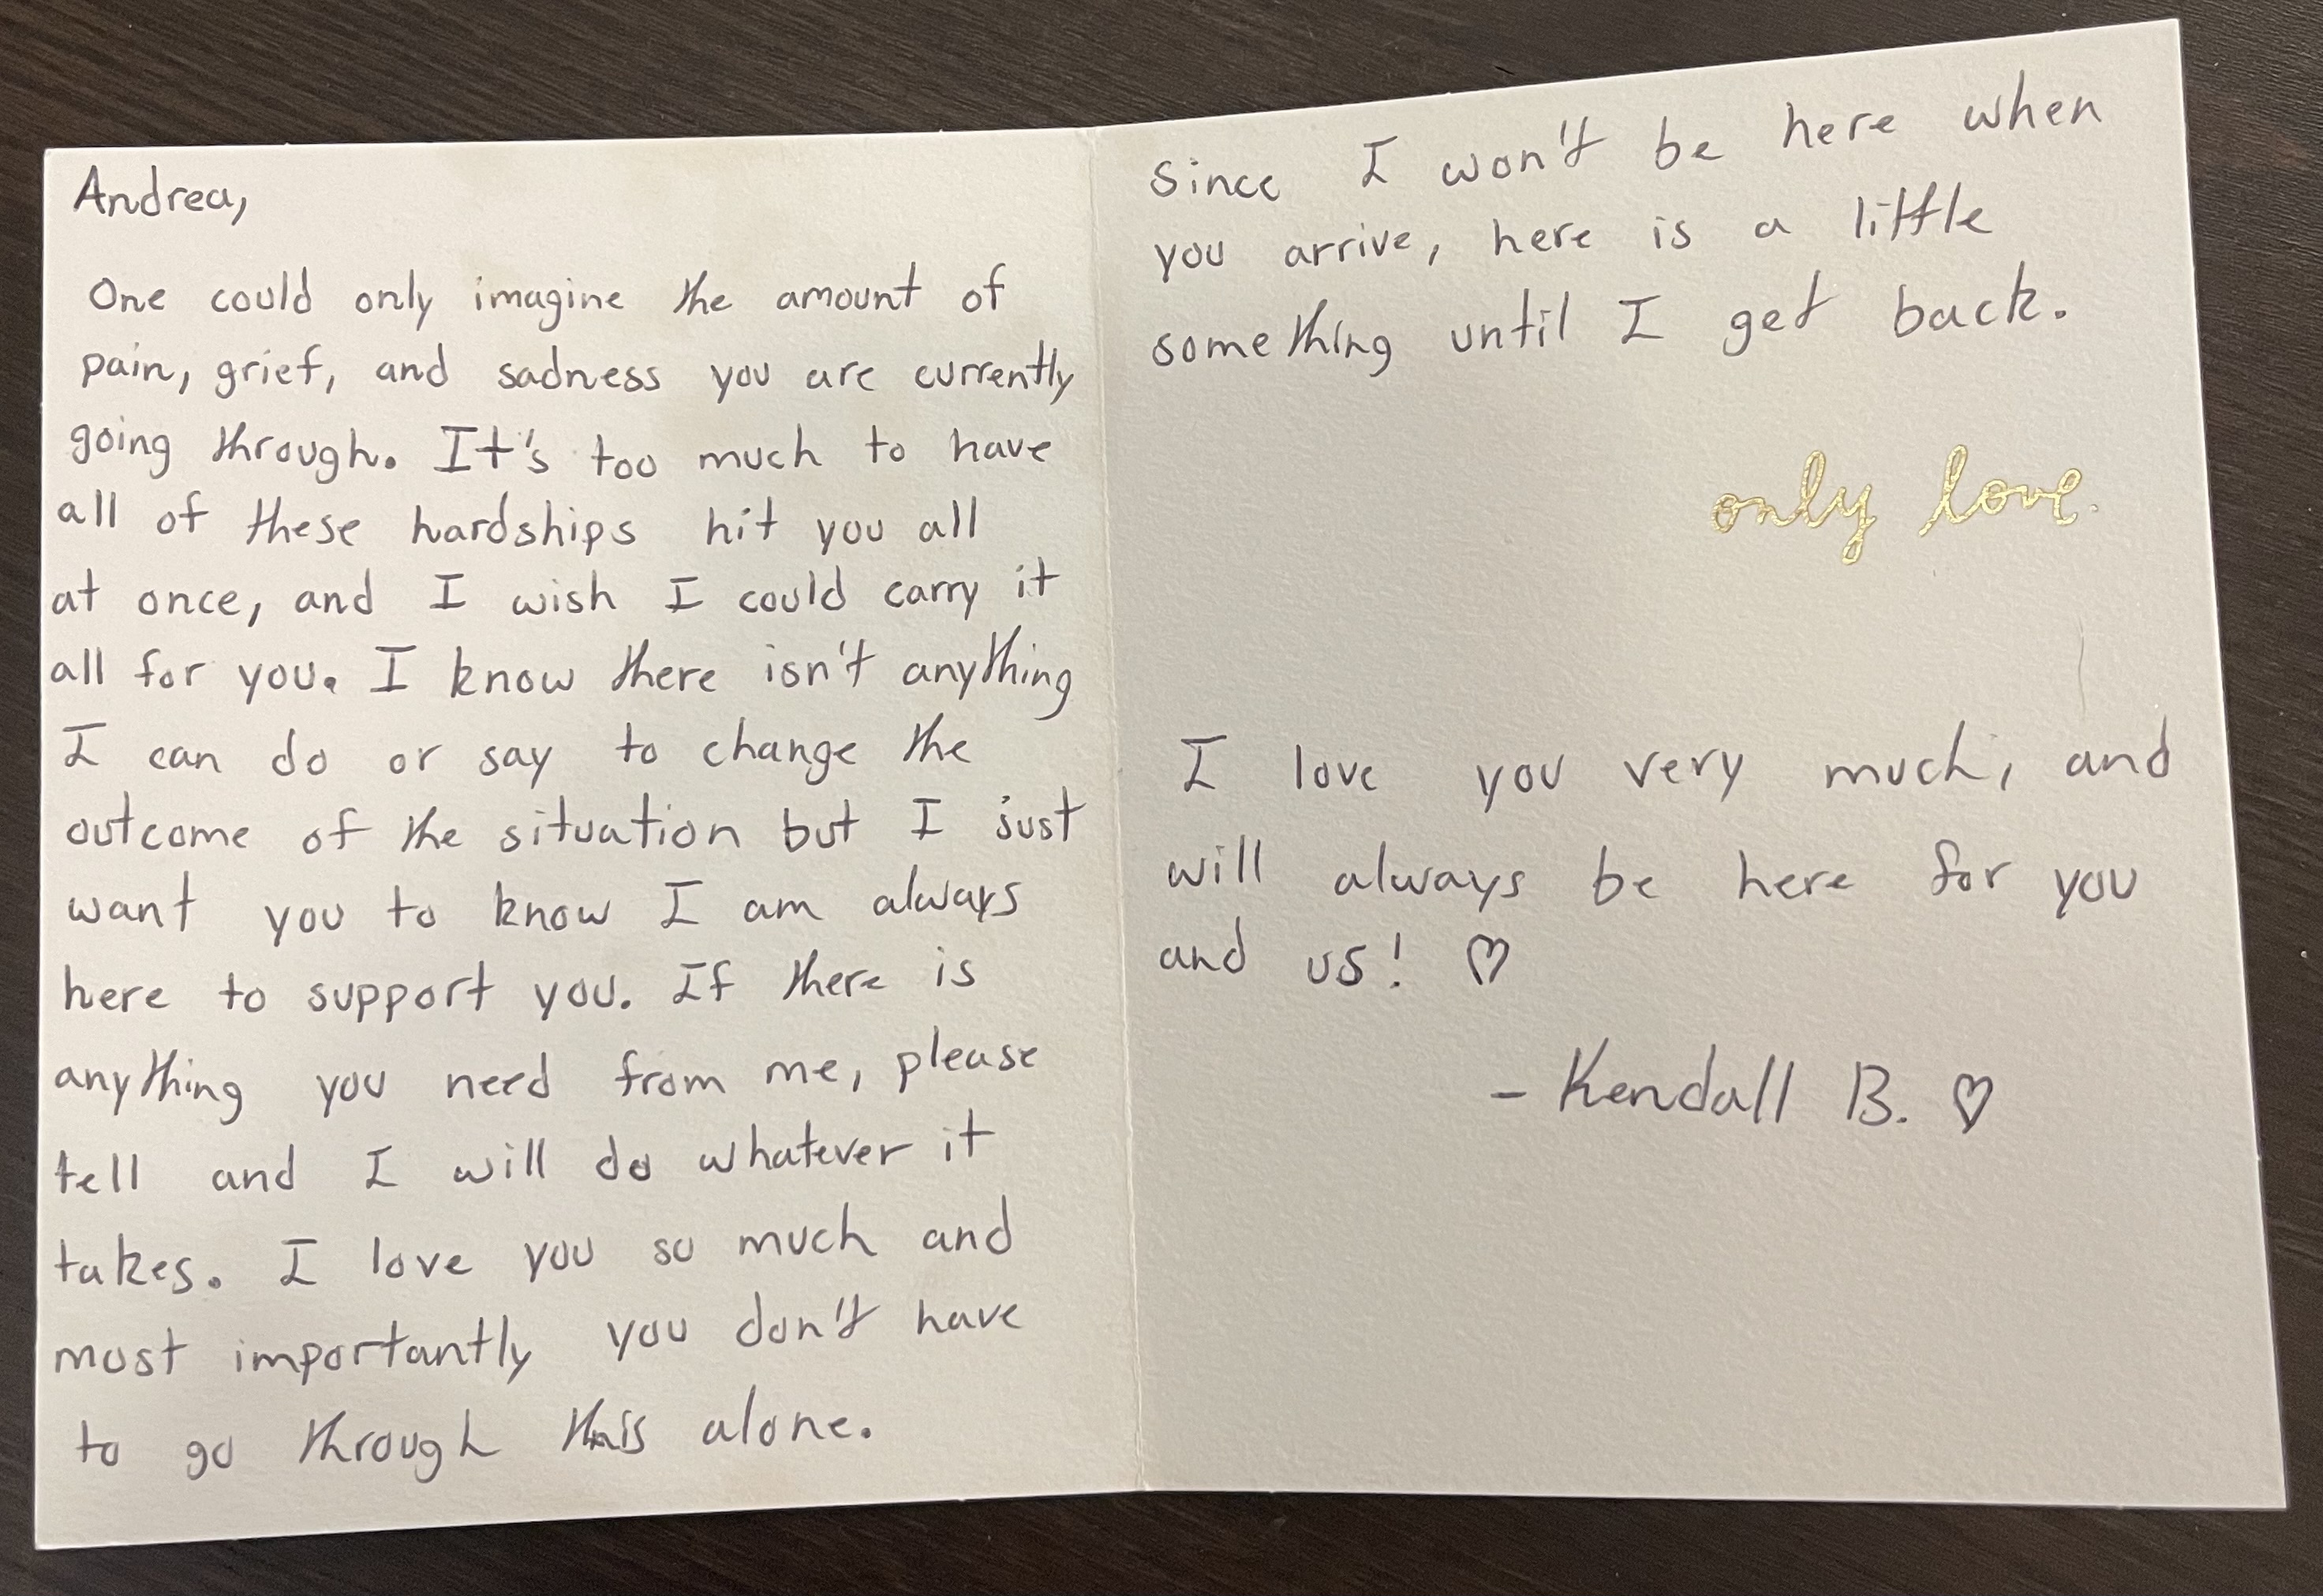 Andrea,
One could only imagine the amount of
pain, grief, and sadness you are currently
going through. It's too much to have
all of these hardships hit you all
at once, and I wish I could carry it
all for you. I know there isn't anything
I can do or say to change the
outcome of the situation but I just
want you to know I am always
here to support you. If there is
anything you need from me, please
tell and I will do whatever it
takes. I love you so much and
most importantly you don't have
to go through this alone.
since I won't be here when
you arrive, here is a little
something until I get back.
only love.
I love you very much, and
will always be here for you
and us! ♡
- Kendall B. ♡